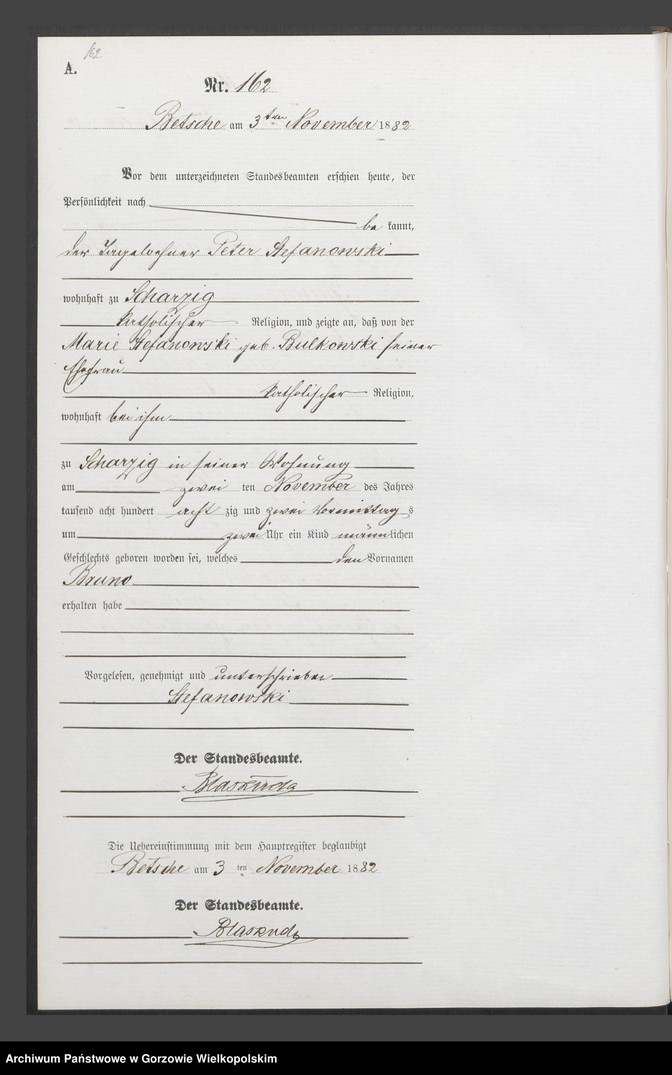 162
A.
Nr. 162
Betsche am 3ten November 1882
Vor dem unterzeichneten Standesbeamten erschien heute, der
Persönlichkeit nach
be kannt,
der Tageloehner Peter Stefanowski
wohnhaft zu Scharzig
katholischer Religion, und zeigte an, daß von der
Marie Stefanowski geb. Bulkowski seiner
Ehefrau
katholischer Religion,
wohnhaft bei ihm
zu Scharzig in seiner Wohnung
am zwei ten November des Jahres
tausend acht hundert acht zig und zwei Vormittag s
um zwei Uhr ein Kind männlichen
Geschlechts geboren worden sei, welches den Vornamen
Bruno
erhalten habe
Vorgelesen, genehmigt und unterschrieben
Stefanowski
Der Standesbeamte.
Blaszuda
Die Uebereinstimmung mit dem Hauptregister beglaubigt
Betsche am 3 ten November 1882
Der Standesbeamte.
Blaszuda
Archiwum Państwowe w Gorzowie Wielkopolskim